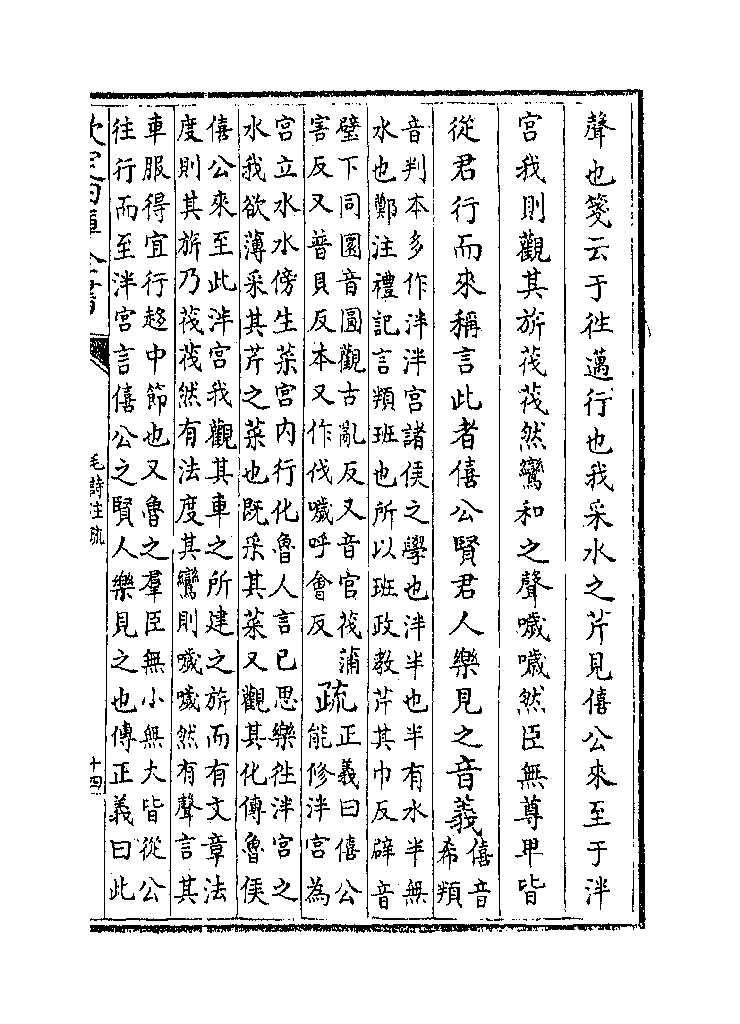 聲也箋云于徃邁行也我采水之芹見僖公來至于泮
宮我則觀其旂茷茷然鸞和之聲噦噦然臣無尊卑皆
從君行而來稱言此者僖公賢君人樂見之音義僖音
希頖
音判本多作泮泮宮諸侯之學也泮半也半有水半無
水也鄭注禮記言頖班也所以班政教芹其巾反辟音
璧下同圜音圓觀古亂反又音官茷蒲
害反又普貝反本又作伐噦呼會反疏正義曰僖公
能修泮宮為
宮立水水傍生菜宮内行化魯人言已思樂徃泮宮之
水我欲薄采其芹之菜也既采其菜又觀其化傳魯侯
僖公來至此泮宮我觀其車之所建之旂而有文章法
度則其旂乃茷茷然有法度其鸞則噦噦然有聲言其
車服得宜行趍中節也又魯之羣臣無小無大皆從公
往行而至泮宮言僖公之賢人樂見之也傳正義曰此
欽定四庫全書
毛詩注疏
十四